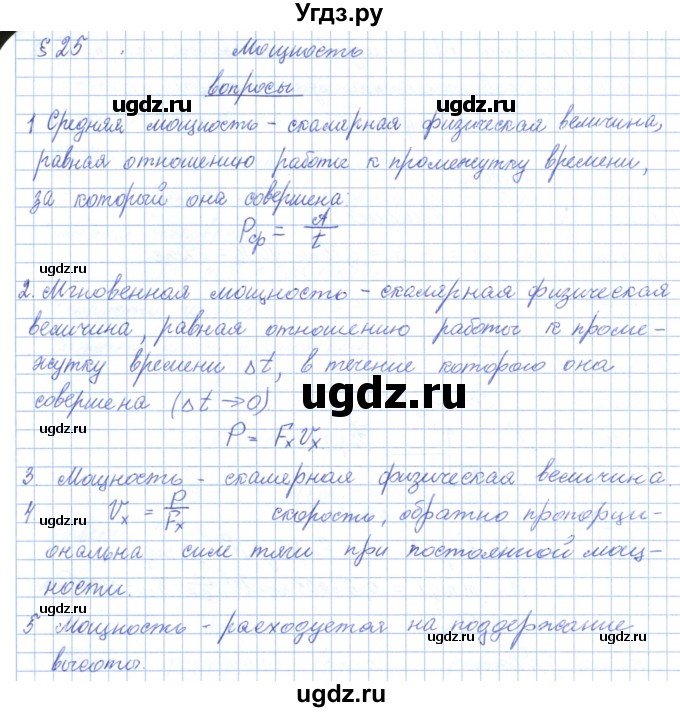 Угдз.ру
§ 25 . Мощность
вопросы
1 Средняя мощность - скалярная физическая величина,
равная отношению работы к промежутку времени,
за который она совершена.
Pср = A/t
2. Мгновенная мощность - скалярная физическая
величина, равная отношению работы к проме-
жутку времени Δt, в течение которого она
совершена (Δt → 0)
P = Fₓvₓ.
3 Мощность - скалярная физическая величина.
4 vₓ = P/Fₓ скорость, обратно пропорци-
ональна силе тяги при постоянной мощ-
ности.
5 Мощность - расходуется на поддержание
высоты.
ugdz.ru
ugdz.ru
ugdz.ru
ugdz.ru
ugdz.ru
ugdz.ru
ugdz.ru
ugdz.ru
ugdz.ru
ugdz.ru
ugdz.ru